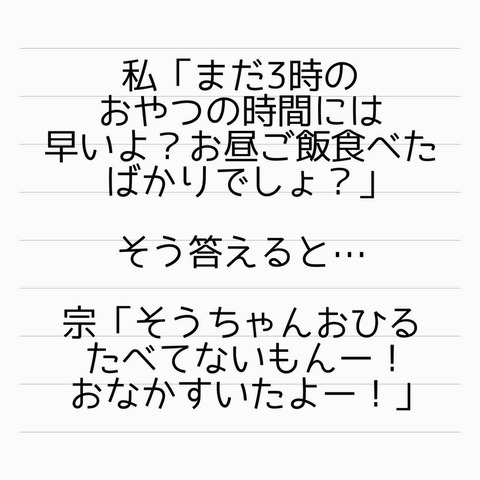 私「まだ3時の
おやつの時間には
早いよ？お昼ご飯食べた
ばかりでしょ？」
そう答えると…
宗「そうちゃんおひる
たべてないもんー！
おなかすいたよー！」